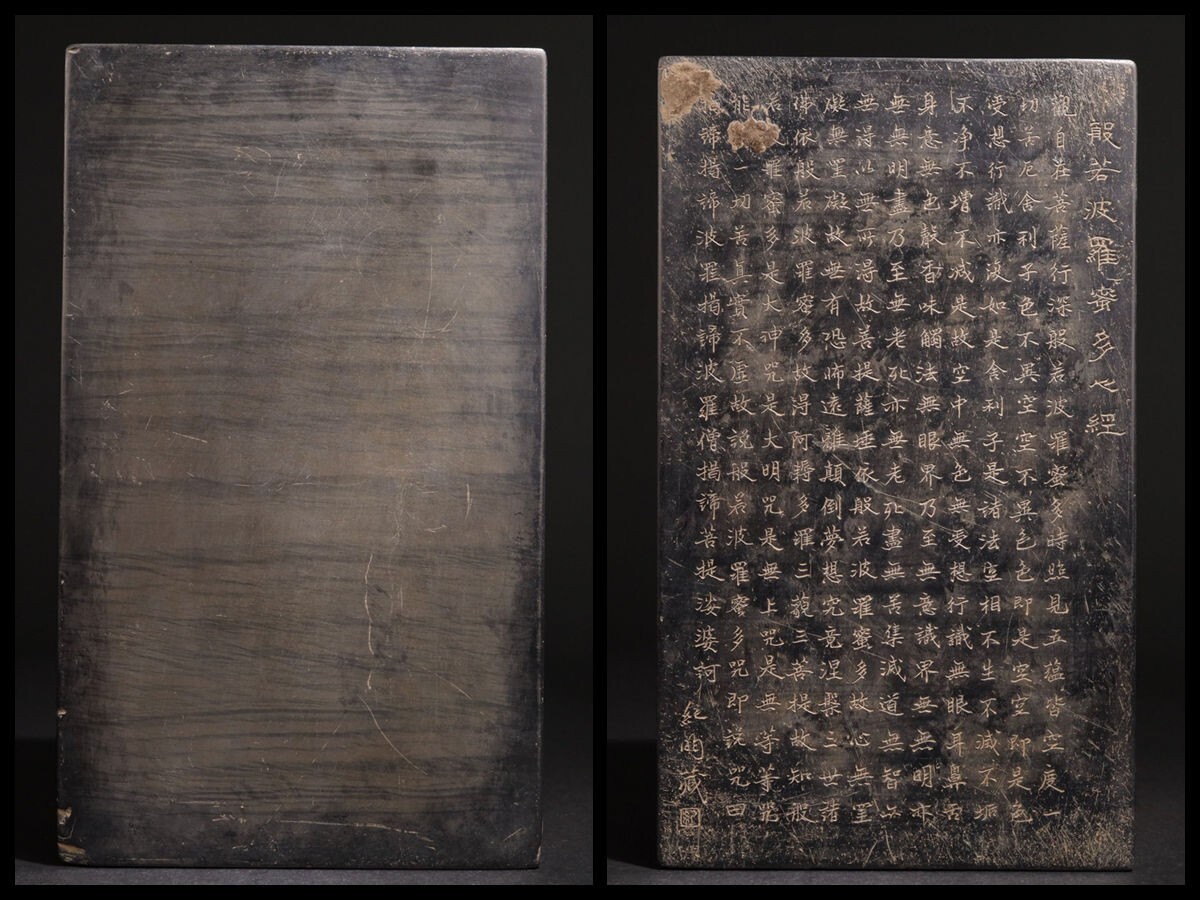 般若波羅蜜多心經
觀自在菩薩行深般若波羅蜜多時照見五蘊皆空度一
切苦厄舍利子色不異空空不異色色即是空空即是色
受想行識亦復如是舍利子是諸法空相不生不滅不垢
不淨不增不減是故空中無色無受想行識無眼耳鼻舌
身意無色聲香味觸法無眼界乃至無意識界無無明亦
無無明盡乃至無老死亦無老死盡無苦集滅道無智亦
無得以無所得故菩提薩埵依般若波羅蜜多故心無罣
礙無罣礙故無有恐怖遠離顛倒夢想究竟涅槃三世諸
佛依般若波羅密多故得阿耨多羅三藐三菩提故知般
若羅蜜多是大神咒是大明咒是無上咒是無等等咒
能一切苦真實不虛故說般若波羅蜜多咒即說咒曰
揭諦揭諦波羅揭諦波羅僧揭諦菩提娑婆訶
紀昀藏